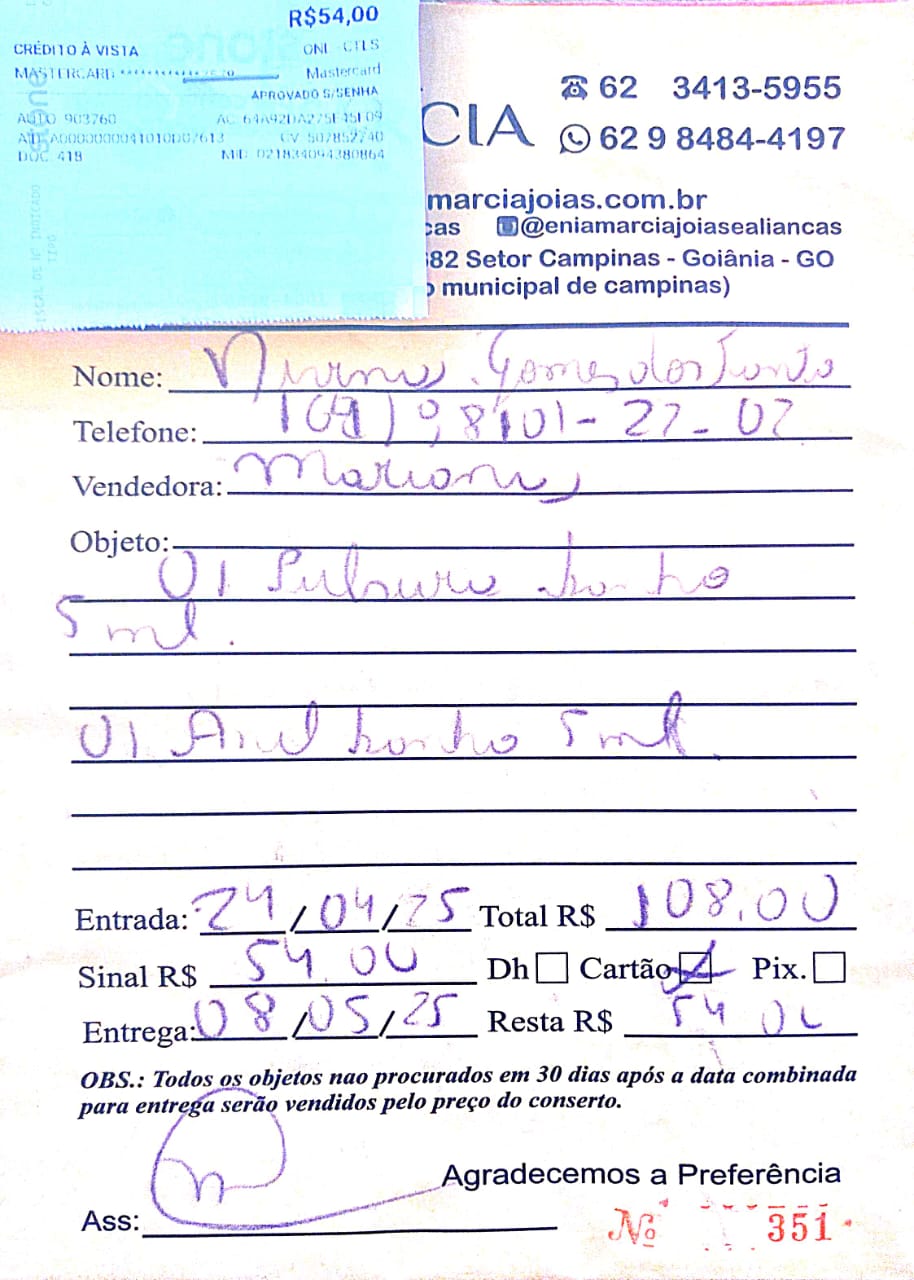 R$54,00
CRÉDITO À VISTA ONL-CTLS
MASTERCARD Mastercard
APROVADO S/SENHA
AUTO 903760 AC 64A92DA275F45F09
CV 507852740
DOC 418
stone
CIA
62 3413-5955
62 9 8484-4197
marciajoias.com.br
cas @eniamarciajoiasealiancas
682 Setor Campinas - Goiânia - GO
o municipal de campinas)
Nome: Gomes dos Santos
Telefone: 98101-27-07
Vendedora: Mariany
Objeto:
01 Pulseira banho
5 ml.
01 Anel banho 5 ml.
Entrada: 24/04/25 Total R$ 108.00
Sinal R$ 54.00 Dh Cartão Pix.
Entrega: 08/05/25 Resta R$ 54 00
OBS.: Todos os objetos nao procurados em 30 dias após a data combinada
para entrega serão vendidos pelo preço do conserto.
Agradecemos a Preferência
Ass:
Nº 351